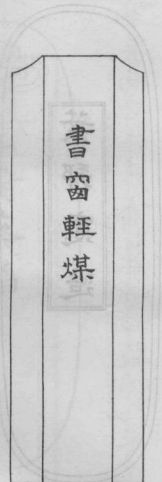 書窗輕煤